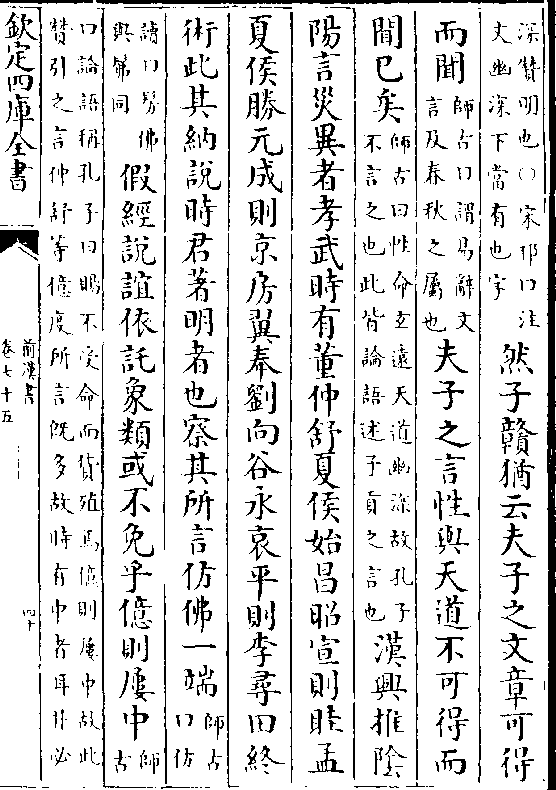 深贊明也○宋祁曰注
文幽深下當有也字
然子贛猶云夫子之文章可得
而聞
師古曰謂易辭文
言及春秋之屬也
夫子之言性與天道不可得而
聞已矣
師古曰性命玄遠天道幽深故孔子
不言之也此皆論語述子貢之言也
漢興推陰
陽言災異者孝武時有董仲舒夏侯始昌昭宣則眭孟
夏侯勝元成則京房翼奉劉向谷永哀平則李尋田終
術此其納說時君著明者也察其所言仿佛一端
師古
曰仿
讀曰髣佛
與髴同
假經說誼依託象類或不免乎億則屢中
師
古
曰論語稱孔子曰賜不受命而貨殖焉億則屢中故此
贊引之言仲舒等億度所言既多故時有中者耳非必
欽定四庫全書
前漢書
卷七十五
四十